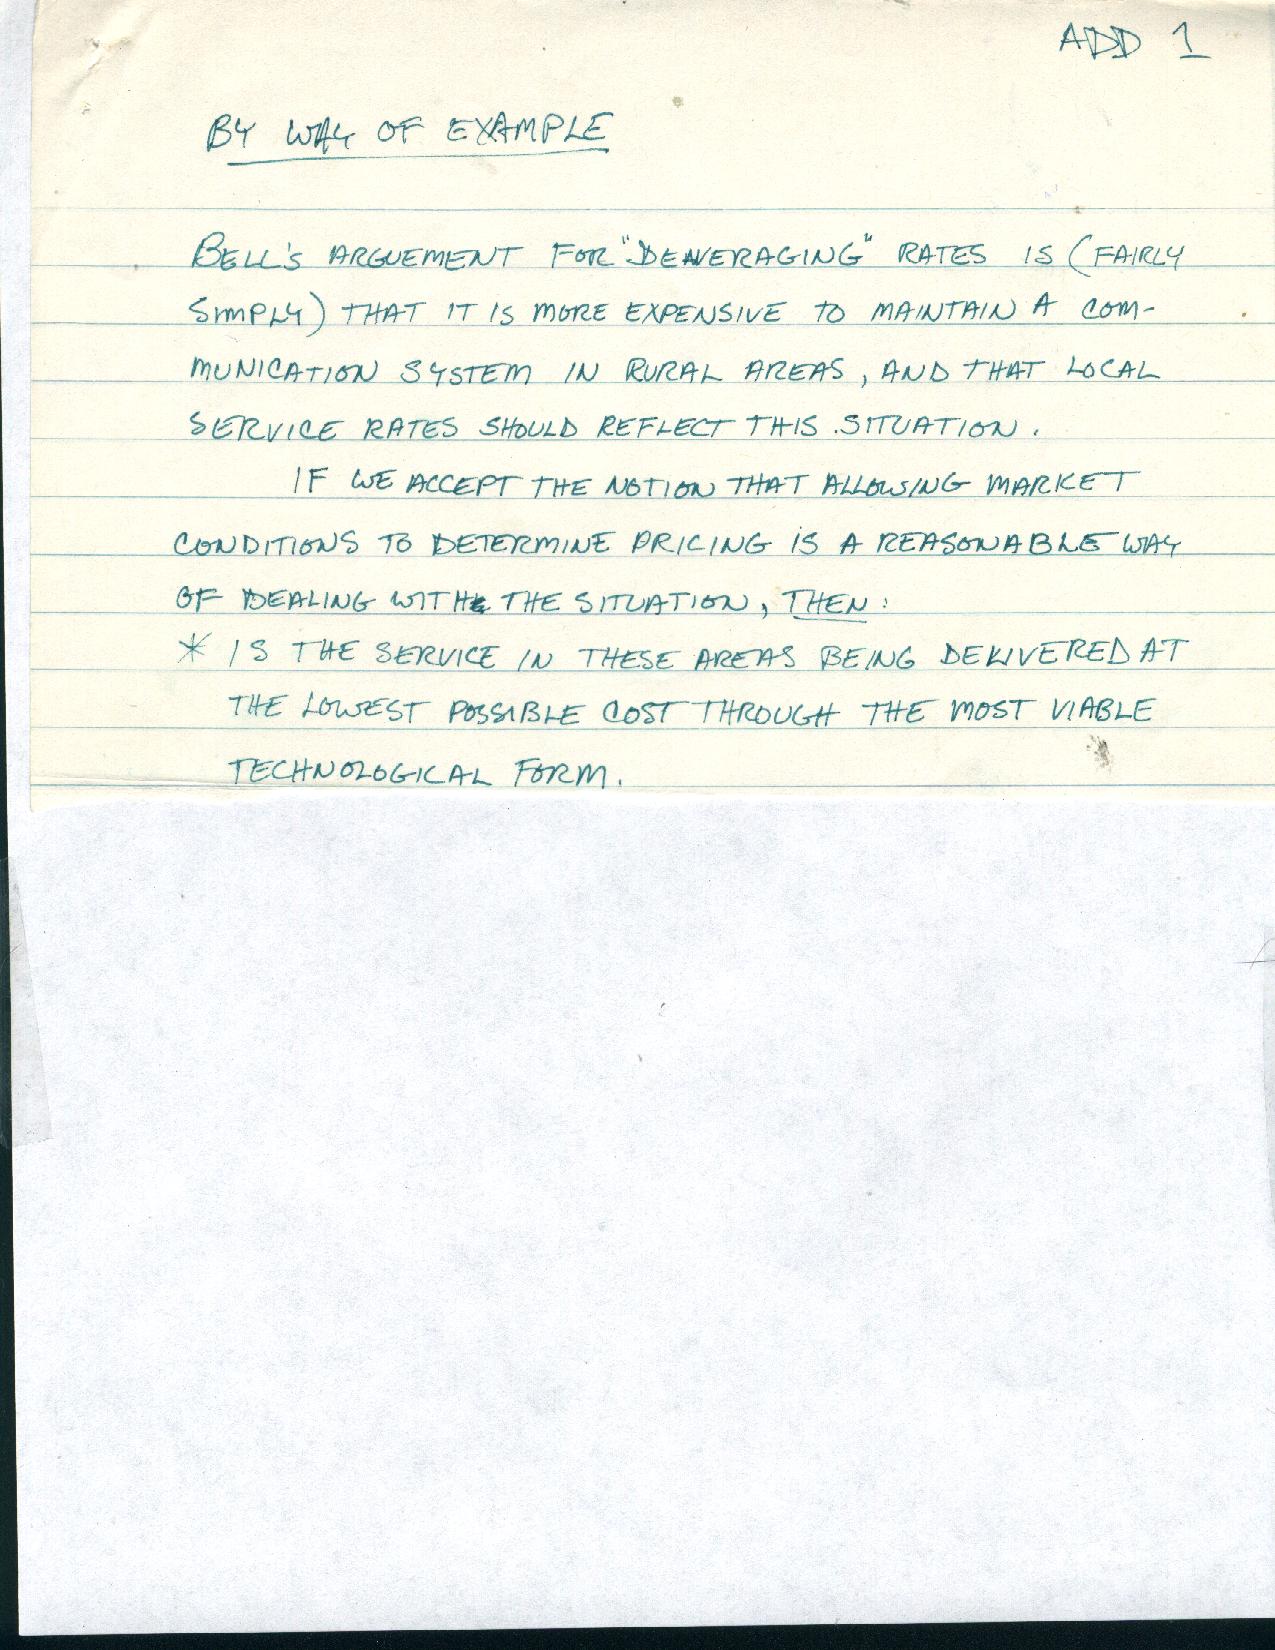 ADD 1
BY WAY OF EXAMPLE
BELL'S ARGUEMENT FOR "DEAVERAGING" RATES IS (FAIRLY
SIMPLY) THAT IT IS MORE EXPENSIVE TO MAINTAIN A COM-
MUNICATION SYSTEM IN RURAL AREAS, AND THAT LOCAL
SERVICE RATES SHOULD REFLECT THIS SITUATION.
IF WE ACCEPT THE NOTION THAT ALLOWING MARKET
CONDITIONS TO DETERMINE PRICING IS A REASONABLE WAY
OF DEALING WITH THE SITUATION, THEN:
* IS THE SERVICE IN THESE AREAS BEING DELIVERED AT
THE LOWEST POSSIBLE COST THROUGH THE MOST VIABLE
TECHNOLOGICAL FORM.